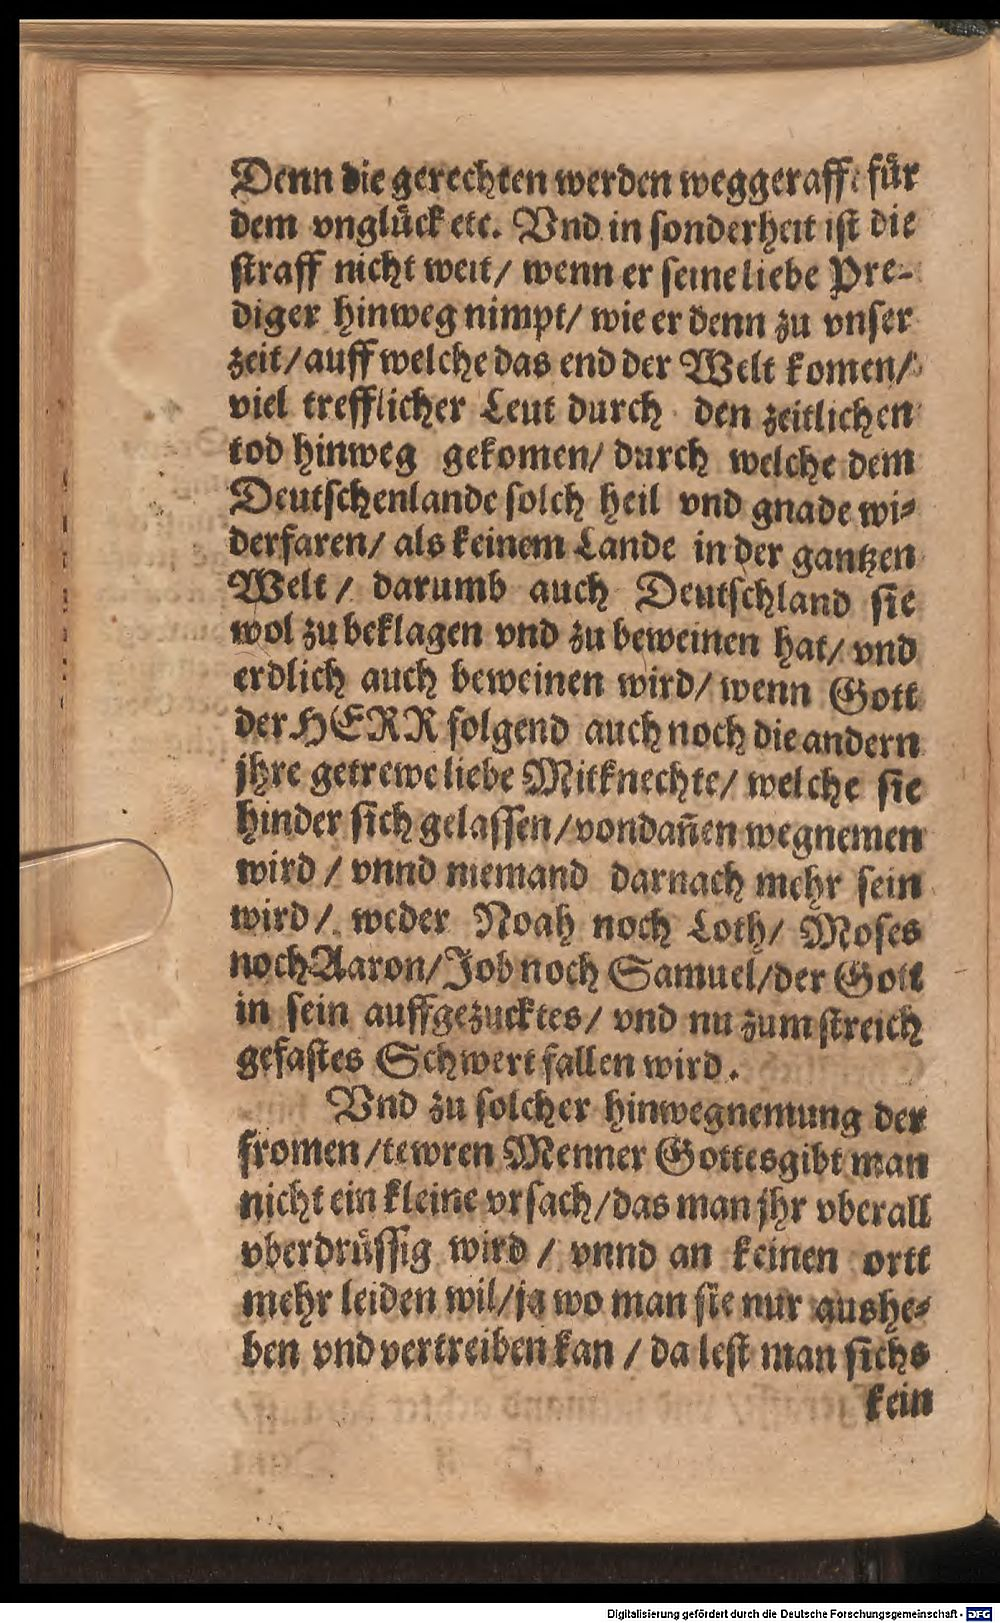 Denn die gerechten werden weggerafft fuͤr
dem vngluͤck etc. Vnd in sonderheit ist die
straff nicht weit/ wenn er seine liebe Pre-
diger hinweg nimpt/ wie er denn zu vnser
zeit/ auff welche das end der Welt komen/
viel trefflicher Leut durch den zeitlichen
tod hinweg gekomen/ durch welche dem
Deutschenlande solch heil vnd gnade wi-
derfaren/ als keinem Lande in der gantzen
Welt/ darumb auch Deutschland sie
wol zu beklagen vnd zu beweinen hat/ vnd
erdlich auch beweinen wird/ wenn Gott
der HERR folgend auch noch die andern
jhre getrewe liebe Mitknechte/ welche sie
hinder sich gelassen/ vondañen wegnemen
wird/ vnnd niemand darnach mehr sein
wird/ weder Noah noch Loth/ Moses
noch Aaron/ Job noch Samuel/ der Gott
in sein auffgezucktes/ vnd nu zum streich
gefastes Schwert fallen wird.
Vnd zu solcher hinwegnemung der
fromen/ tewren Menner Gottes gibt man
nicht ein kleine vrsach/ das man jhr vberall
vberdruͤssig wird/ vnnd an keinen ortt
mehr leiden wil/ ja wo man sie nur aushe-
ben vnd vertreiben kan/ da lest man sichs
kein
Digitalisierung gefördert durch die Deutsche Forschungsgemeinschaft - DFG